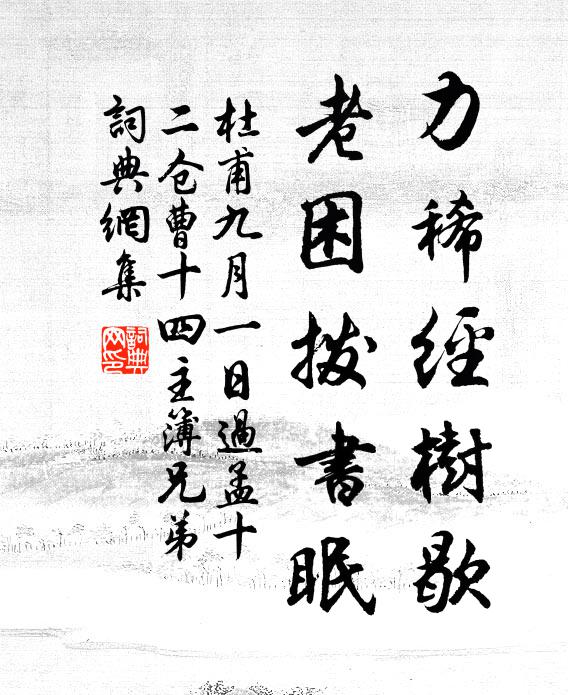 力稀經樹歇
老困撥書眠
杜甫九月一日過孟十
二仓曹十四主簿兄弟
詞典網集
詞典
网印